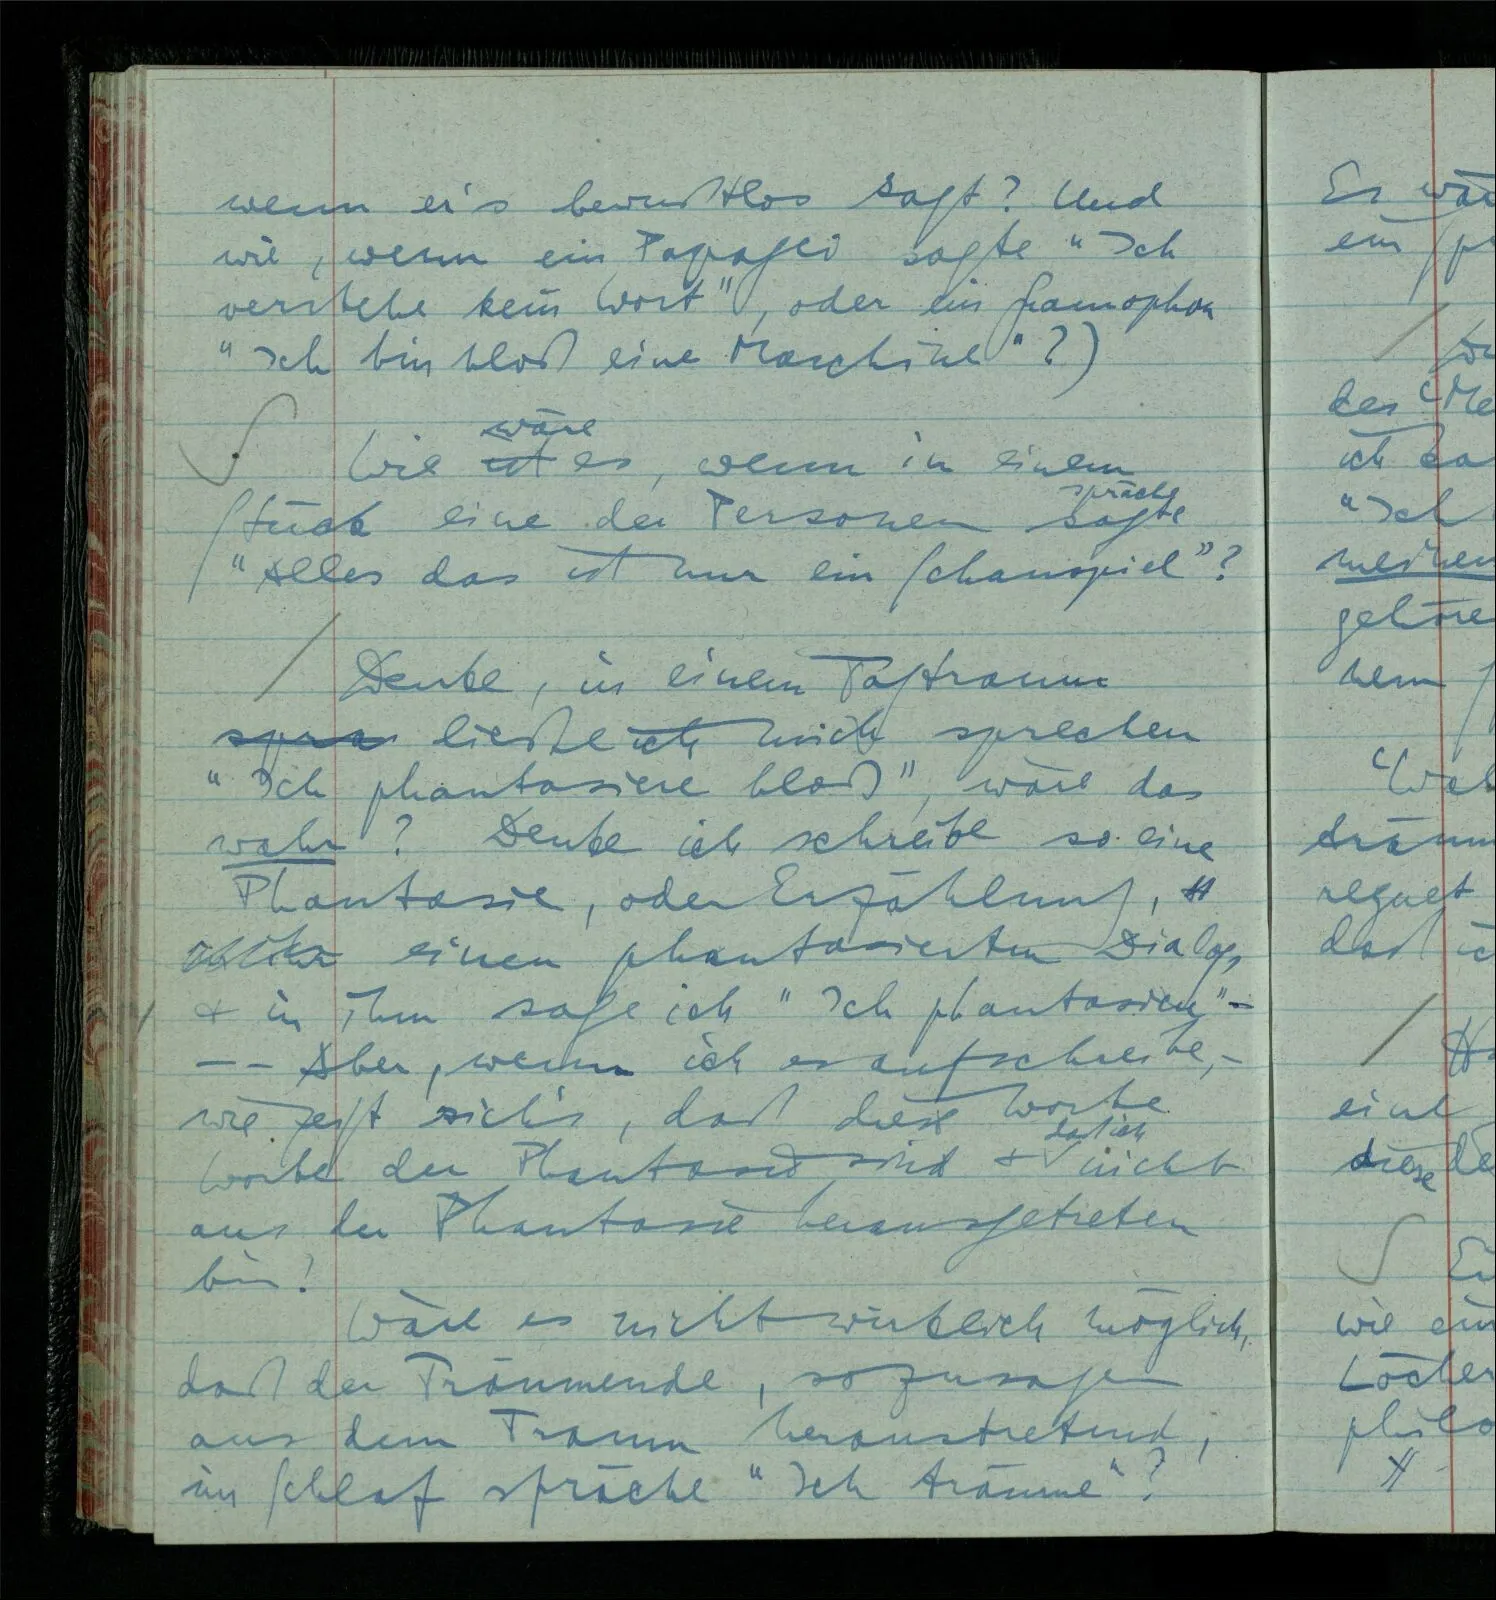 wenn er's bewußtlos sagt? Und
wie, wenn ein Papagei sagte "Ich
verstehe kein Wort", oder ein Gramophon
"Ich bin bloß eine Maschine"?)
wäre
Wie ist es, wenn in einem
spräche
Stück eine der Personen sagte
"Alles das ist nur ein Schauspiel"?
Denke, in einem Tagtraum
spra ließe ich mich sprechen
"Ich phantasiere bloß", wäre das
wahr? Denke ich schreibe so eine
Phantasie, oder Erzählung,
einen phantasierten Dialog,
& in ihm sage ich "Ich phantasiere" –
– – Aber, wenn ich es aufschreibe, –
wie zeigt sich's, daß diese Worte
daß ich
Worte der Phantasie sind & nicht
aus der Phantasie herausgetreten
bin?
Wäre es nicht wirklich möglich,
daß der Träumende, sozusagen
aus dem Traum heraustretend,
im Schlaf spräche "Ich träume"?
Es wär
ein
des Me
ich ha
"Ich
meinen
gehöre
nem
träum
regnet
daß ic
eine
diese
wie ein
Löcher
philo